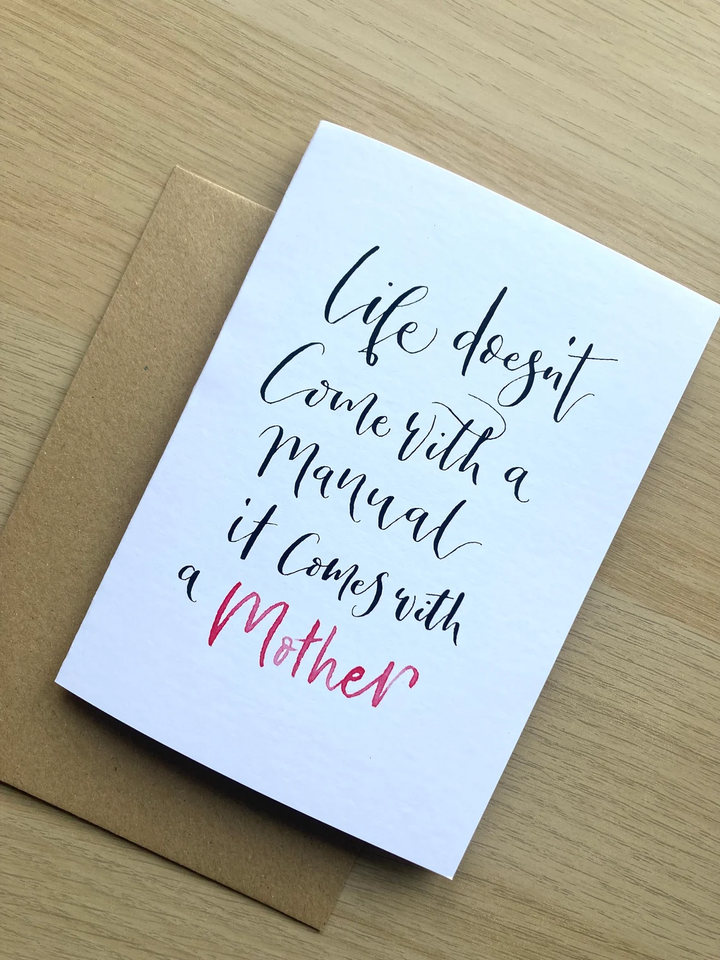 Life doesn't
Come with a
Manual
it Comes with
a Mother